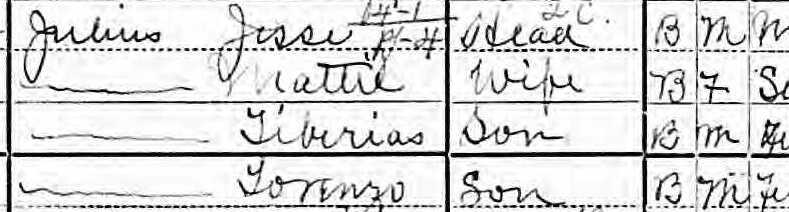 Julius Jesse 14-1 Head B M M
Mattie Wife B F Se
Tiberias Son B M Fe
Lorenzo Son B M Fe